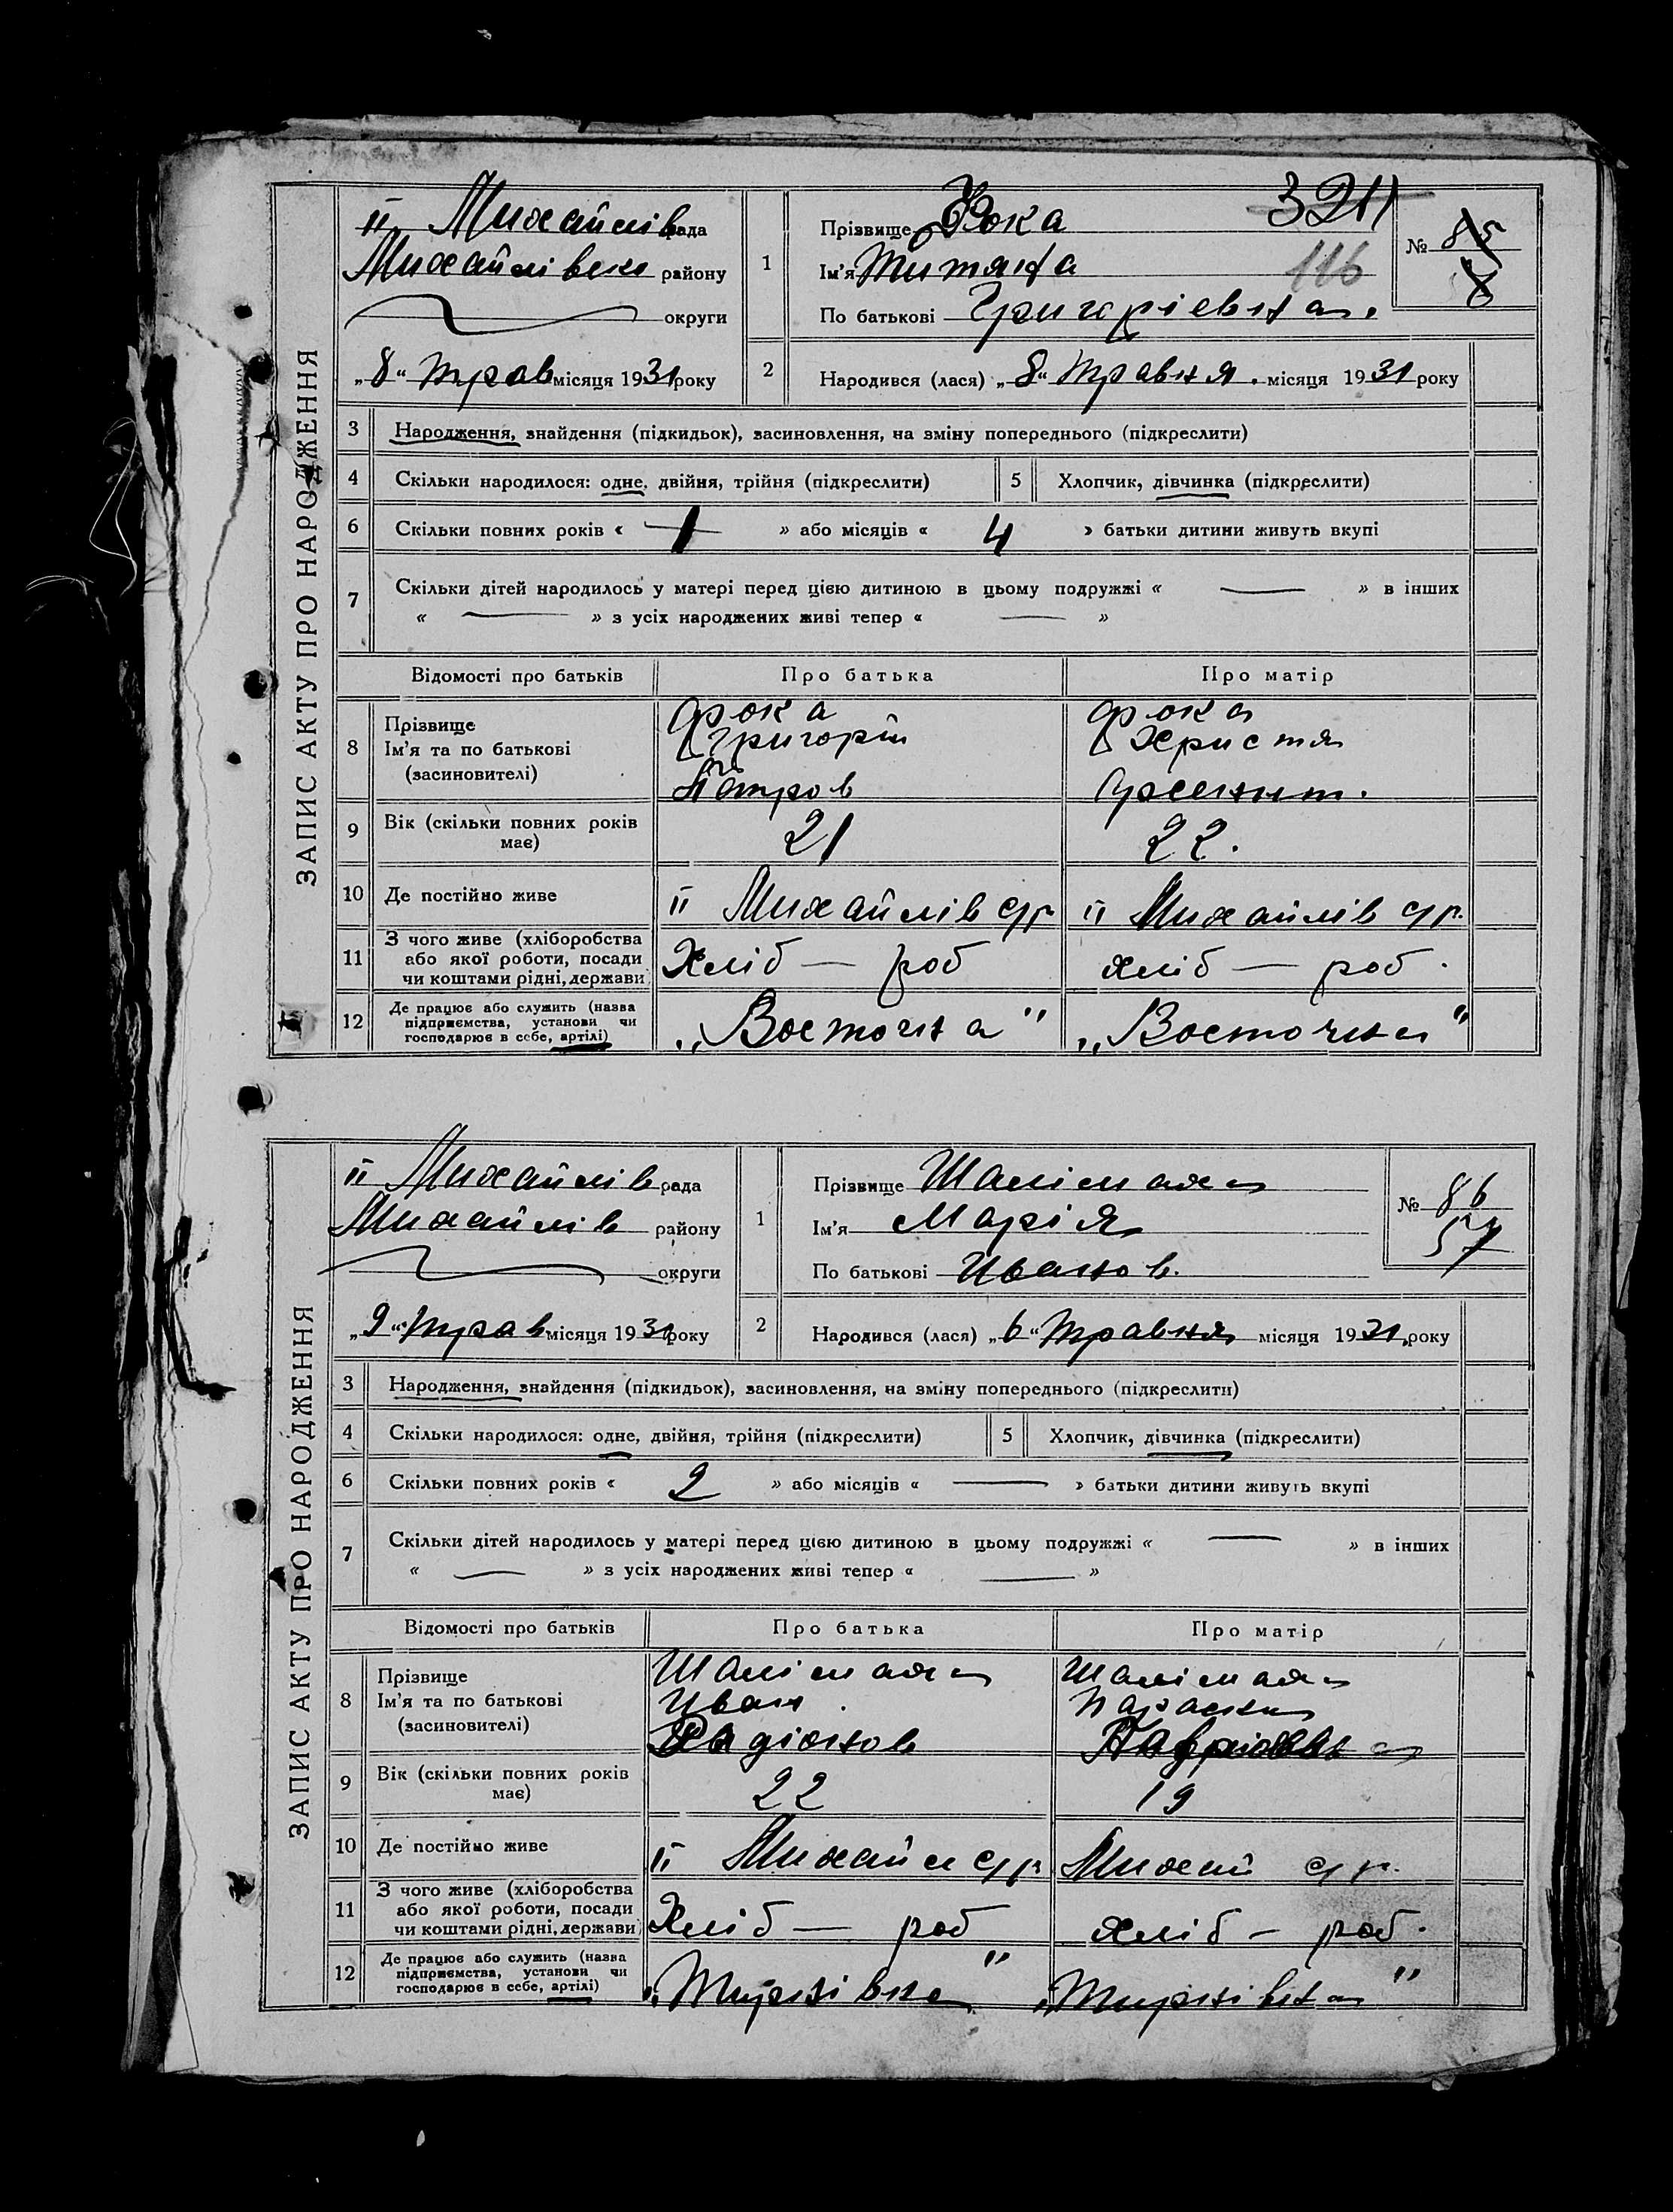 ЗАПИС АКТУ ПРО НАРОДЖЕННЯ
II Михайлів рада
Михайлівськ району
округи
„8“ трав місяця 1931 року
1
Прізвище Фока
3211
Ім'я Титяна
116
По батькові Григоріевна.
№ 85
2
Народився (лася) „8“ травня. місяця 1931 року
3 Народження, знайдення (підкидьок), засиновлення, на зміну попереднього (підкреслити)
4 Скільки народилося: одне, двійня, трійня (підкреслити) 5 Хлопчик, дівчинка (підкреслити)
6 Скільки повних років « 1 » або місяців « 4 » батьки дитини живуть вкупі
7 Скільки дітей народилось у матері перед цією дитиною в цьому подружжі « — » в інших
« — » з усіх народжених живі тепер « — »
Відомості про батьків Про батька Про матір
8 Прізвище Фока Фока
Ім'я та по батькові Григорій Христя
(засиновителі) Петров
9 Вік (скільки повних років має) 21 22.
10 Де постійно живе II Михайлів с/р II Михайлів с/р.
11 З чого живе (хліборобства або якої роботи, посади чи коштами рідні, держави Хліб — роб хліб — роб.
12 Де працює або служить (назва підприємства, установи чи господарює в себе, артілі) „Восточна" „Восточна"
ЗАПИС АКТУ ПРО НАРОДЖЕННЯ
II Михайлів рада
Михайлів району
округи
„9“ трав місяця 1931 року
1
Прізвище
Ім'я Марія
По батькові Иванов.
№ 86
57
2
Народився (лася) „6“ травня місяця 1931 року
3 Народження, знайдення (підкидьок), засиновлення, на зміну попереднього (підкреслити)
4 Скільки народилося: одне, двійня, трійня (підкреслити) 5 Хлопчик, дівчинка (підкреслити)
6 Скільки повних років « 2 » або місяців « — » батьки дитини живуть вкупі
7 Скільки дітей народилось у матері перед цією дитиною в цьому подружжі « — » в інших
« — » з усіх народжених живі тепер « — »
Відомості про батьків Про батька Про матір
8 Прізвище
Ім'я та по батькові Иван Параска
(засиновителі) Радіонов
9 Вік (скільки повних років має) 22 19
10 Де постійно живе II Михайл с/р Михай с/р.
11 З чого живе (хліборобства або якої роботи, посади чи коштами рідні, держави Хліб — роб хліб — роб.
12 Де працює або служить (назва підприємства, установи чи господарює в себе, артілі)